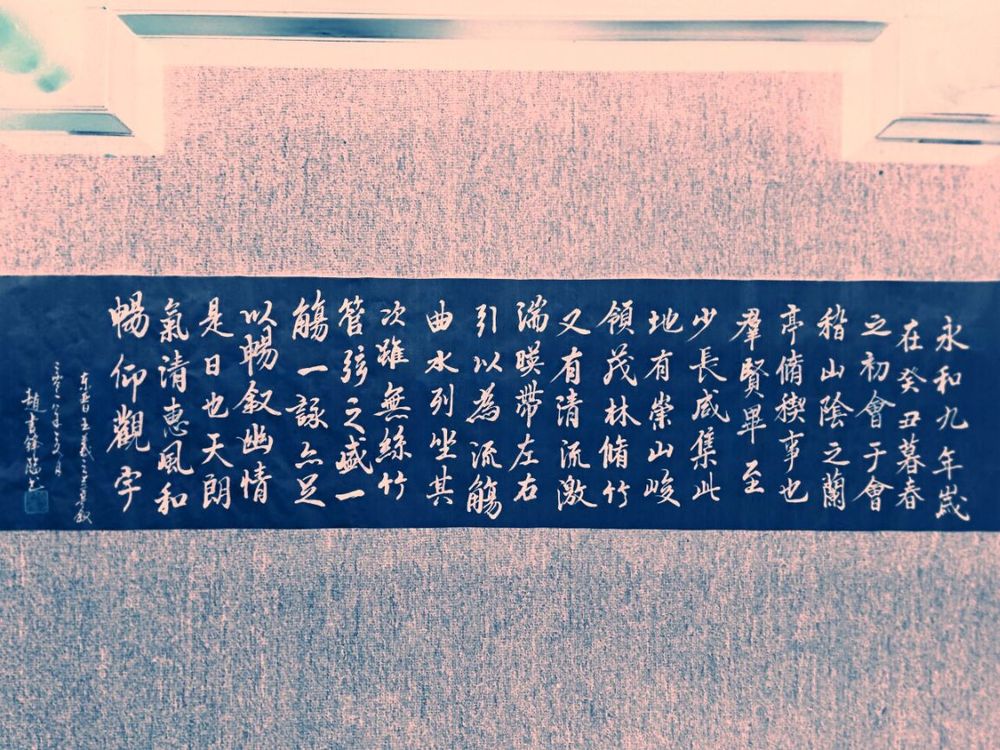 永和九年歲
在癸丑暮春
之初會于會
稽山陰之蘭
亭脩稧事也
羣賢畢至
少長咸集此
地有崇山峻
領茂林脩竹
又有清流激
湍暎帶左右
引以為流觴
曲水列坐其
次雖無絲竹
管弦之盛一
觴一詠亦足
以暢叙幽情
是日也天朗
氣清惠風和
暢仰觀宇
东晋王羲之兰亭叙